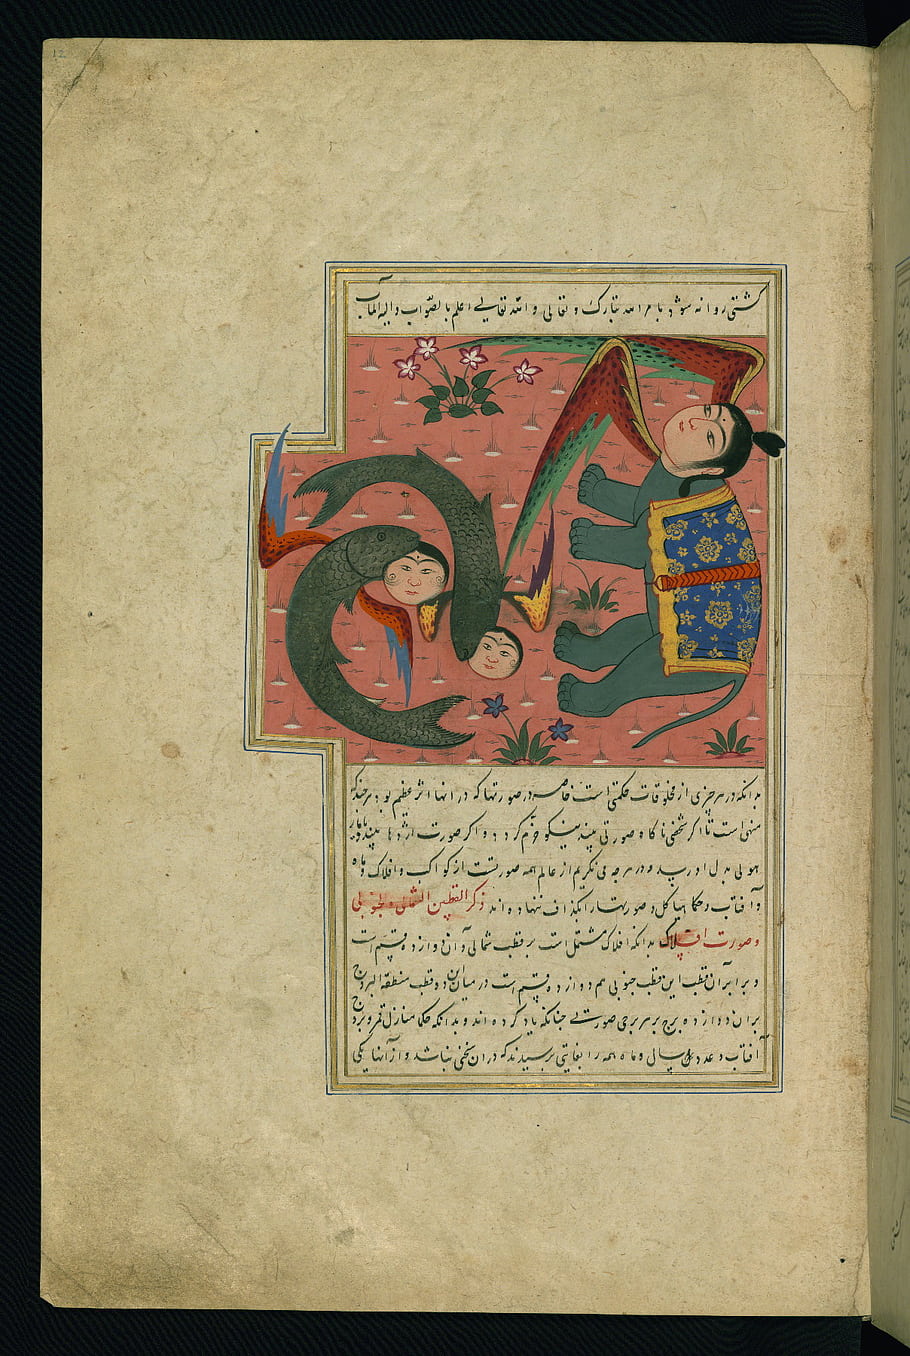 12
کشتی روانه شود بامر الله تبارک و تعالی والله تعالی اعلم بالصواب والیه المآب
بدانکه در هر چیزی از مخلوقات حکمتی است خاصه در صورتها که در آنها اثر عظیم بود هرچند که
منهاست تا اگر شخصی ناگاه صورتی بیند نیکو خرم گردد و اگر صورت اژدها بیند
هولی بدل او رسد و در هرچه می نگریم از عالم همه صورتست از کواکب و افلاک و ماه
و آفتاب و حکما هیاکل و صورتها را بگذاف ننهاده اند ذکر القطبین الشمالی والجنوبی
وصورت افلاک بدانکه افلاک مشتمل است بر قطب شمالی و آن دوازده قسم است
و برابر آن قطب این قطب جنوبی هم دوازده قسم است در میان این دو قطب منطقة البروج
بر آن دوازده برج بر هر برجی صورتی چنانکه یاد کرده اند و بدانکه حکما منازل قمر و بروج
آفتاب و عدد سال و ماه همه را بغایتی برسیدند که در آن سخنی نباشد و از آنها یکی